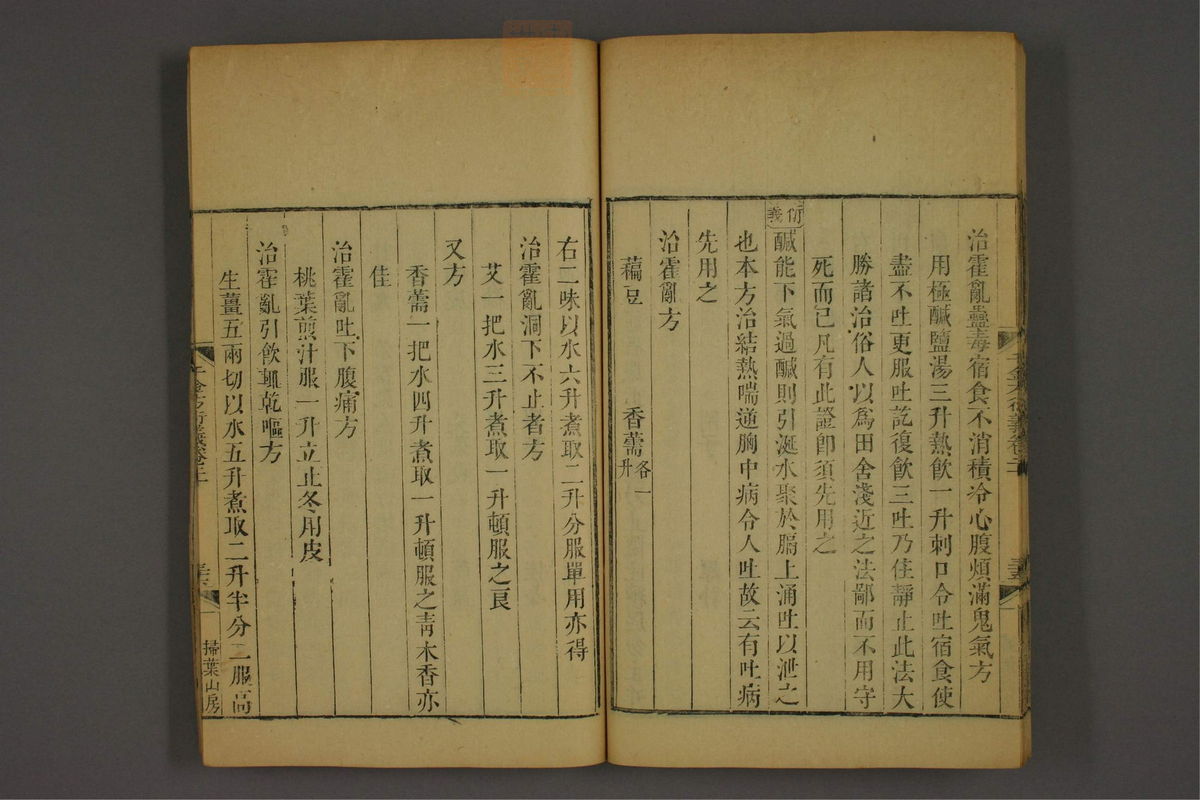 治霍亂蠱毒宿食不消積冷心腹煩滿鬼氣方
用極鹹鹽湯三升熱飲一升刺口令吐宿食使
盡不吐更服吐訖復飲三吐乃住靜止此法大
勝諸治俗人以為田舍淺近之法鄙而不用守
死而已凡有此證卽須先用之
衍義
鹹能下氣過鹹則引涎水聚於膈上涌吐以泄之
也本方治結熱喘逆胸中病令人吐故云有吐病
先用之
治霍亂方
藊豆 香薷各一升
右二味以水六升煮取二升分服單用亦得
治霍亂洞下不止者方
艾一把水三升煮取一升頓服之良
又方
香薷一把水四升煮取一升頓服之靑木香亦
佳
治霍亂吐下腹痛方
桃葉煎汁服一升立止冬用皮
治霍亂引飲輒乾嘔方
生薑五兩切以水五升煮取二升半分二服高
千金方衍義卷二十
掃葉山房